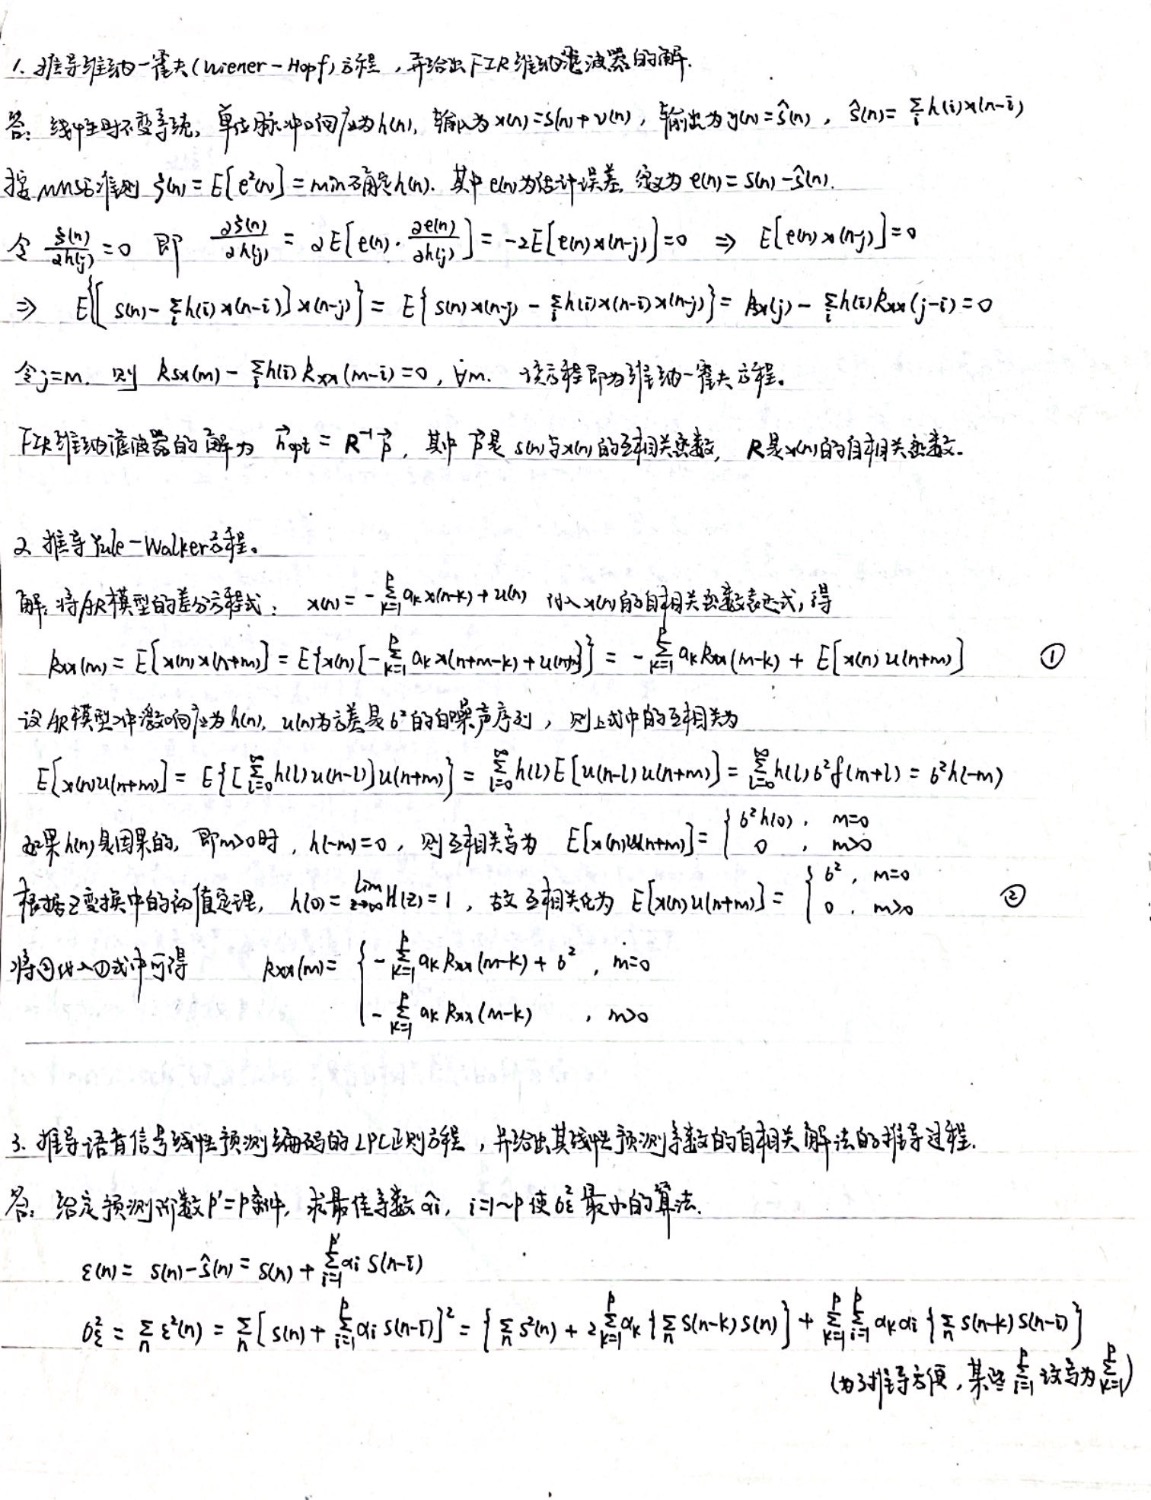 1. 推导维纳-霍夫(Wiener-Hopf)方程，并给出FIR维纳滤波器的解.
答: 线性时不变系统, 单位脉冲响应为h(n), 输入为x(n)=s(n)+v(n), 输出为y(n)=ŝ(n), ŝ(n)=∑_i h(i)x(n-i)
按MMSE准则 ξ(n)=E[e²(n)]=min 确定h(n). 其中e(n)为估计误差, 定义为 e(n)=s(n)-ŝ(n).
令 ξ(n)/∂h(j)=0 即 ∂ξ(n)/∂h(j) = 2E[e(n)·∂e(n)/∂h(j)] = -2E[e(n)x(n-j)]=0 ⇒ E[e(n)x(n-j)]=0
⇒ E{[s(n)-∑_i h(i)x(n-i)]x(n-j)} = E{s(n)x(n-j) - ∑_i h(i)x(n-i)x(n-j)} = Rsx(j) - ∑_i h(i)Rxx(j-i)=0
令j=m. 则 Rsx(m) - ∑_i h(i)Rxx(m-i)=0, ∀m. 该方程即为维纳-霍夫方程。
FIR维纳滤波器的解为 h⃗opt = R⁻¹P⃗, 其中P⃗是s(n)与x(n)的互相关函数, R是x(n)的自相关函数.
2. 推导Yule-Walker方程。
解: 将AR模型的差分方程式: x(n) = -∑_{k=1}^p a_k x(n-k)+u(n) 代入x(n)的自相关函数表达式, 得
Rxx(m) = E[x(n)x(n+m)] = E{x(n)[-∑_{k=1}^p a_k x(n+m-k)+u(n+m)]} = -∑_{k=1}^p a_k Rxx(m-k) + E[x(n)u(n+m)] ①
设AR模型冲激响应为h(n), u(n)为方差是б²的白噪声序列, 则上式中的互相关为
E[x(n)u(n+m)] = E{[∑_{l=0}^∞ h(l)u(n-l)]u(n+m)} = ∑_{l=0}^∞ h(l)E[u(n-l)u(n+m)] = ∑_{l=0}^∞ h(l)б²δ(m+l) = б²h(-m)
如果h(n)是因果的, 即m>0时, h(-m)=0, 则互相关写为 E[x(n)u(n+m)] = { б²h(0), m=0
0, m>0
根据Z变换中的初值定理, h(0)=lim_{z→∞} H(z)=1, 故互相关化为 E[x(n)u(n+m)] = { б², m=0
0, m>0 ②
将②代入①式中可得 Rxx(m) = { -∑_{k=1}^p a_k Rxx(m-k)+б², m=0
-∑_{k=1}^p a_k Rxx(m-k), m>0
3. 推导语音信号线性预测编码的LPC正则方程, 并给出其线性预测系数的自相关解法的推导过程.
答: 给定预测阶数p'=p条件, 求最佳系数α̂i, i=1~p使б²_ε最小的算法.
ε(n) = s(n)-ŝ(n) = s(n)+∑_{i=1}^p αi s(n-i)
б²_ε = ∑_n ε²(n) = ∑_n [s(n)+∑_{i=1}^p αi s(n-i)]² = {∑_n s²(n) + 2∑_{k=1}^p αk{∑_n s(n-k)s(n)} + ∑_{k=1}^p ∑_{i=1}^p αkαi{∑_n s(n-k)s(n-i)}
(为了推导方便, 某些∑_{i=1}^p 改写为∑_{k=1}^p)